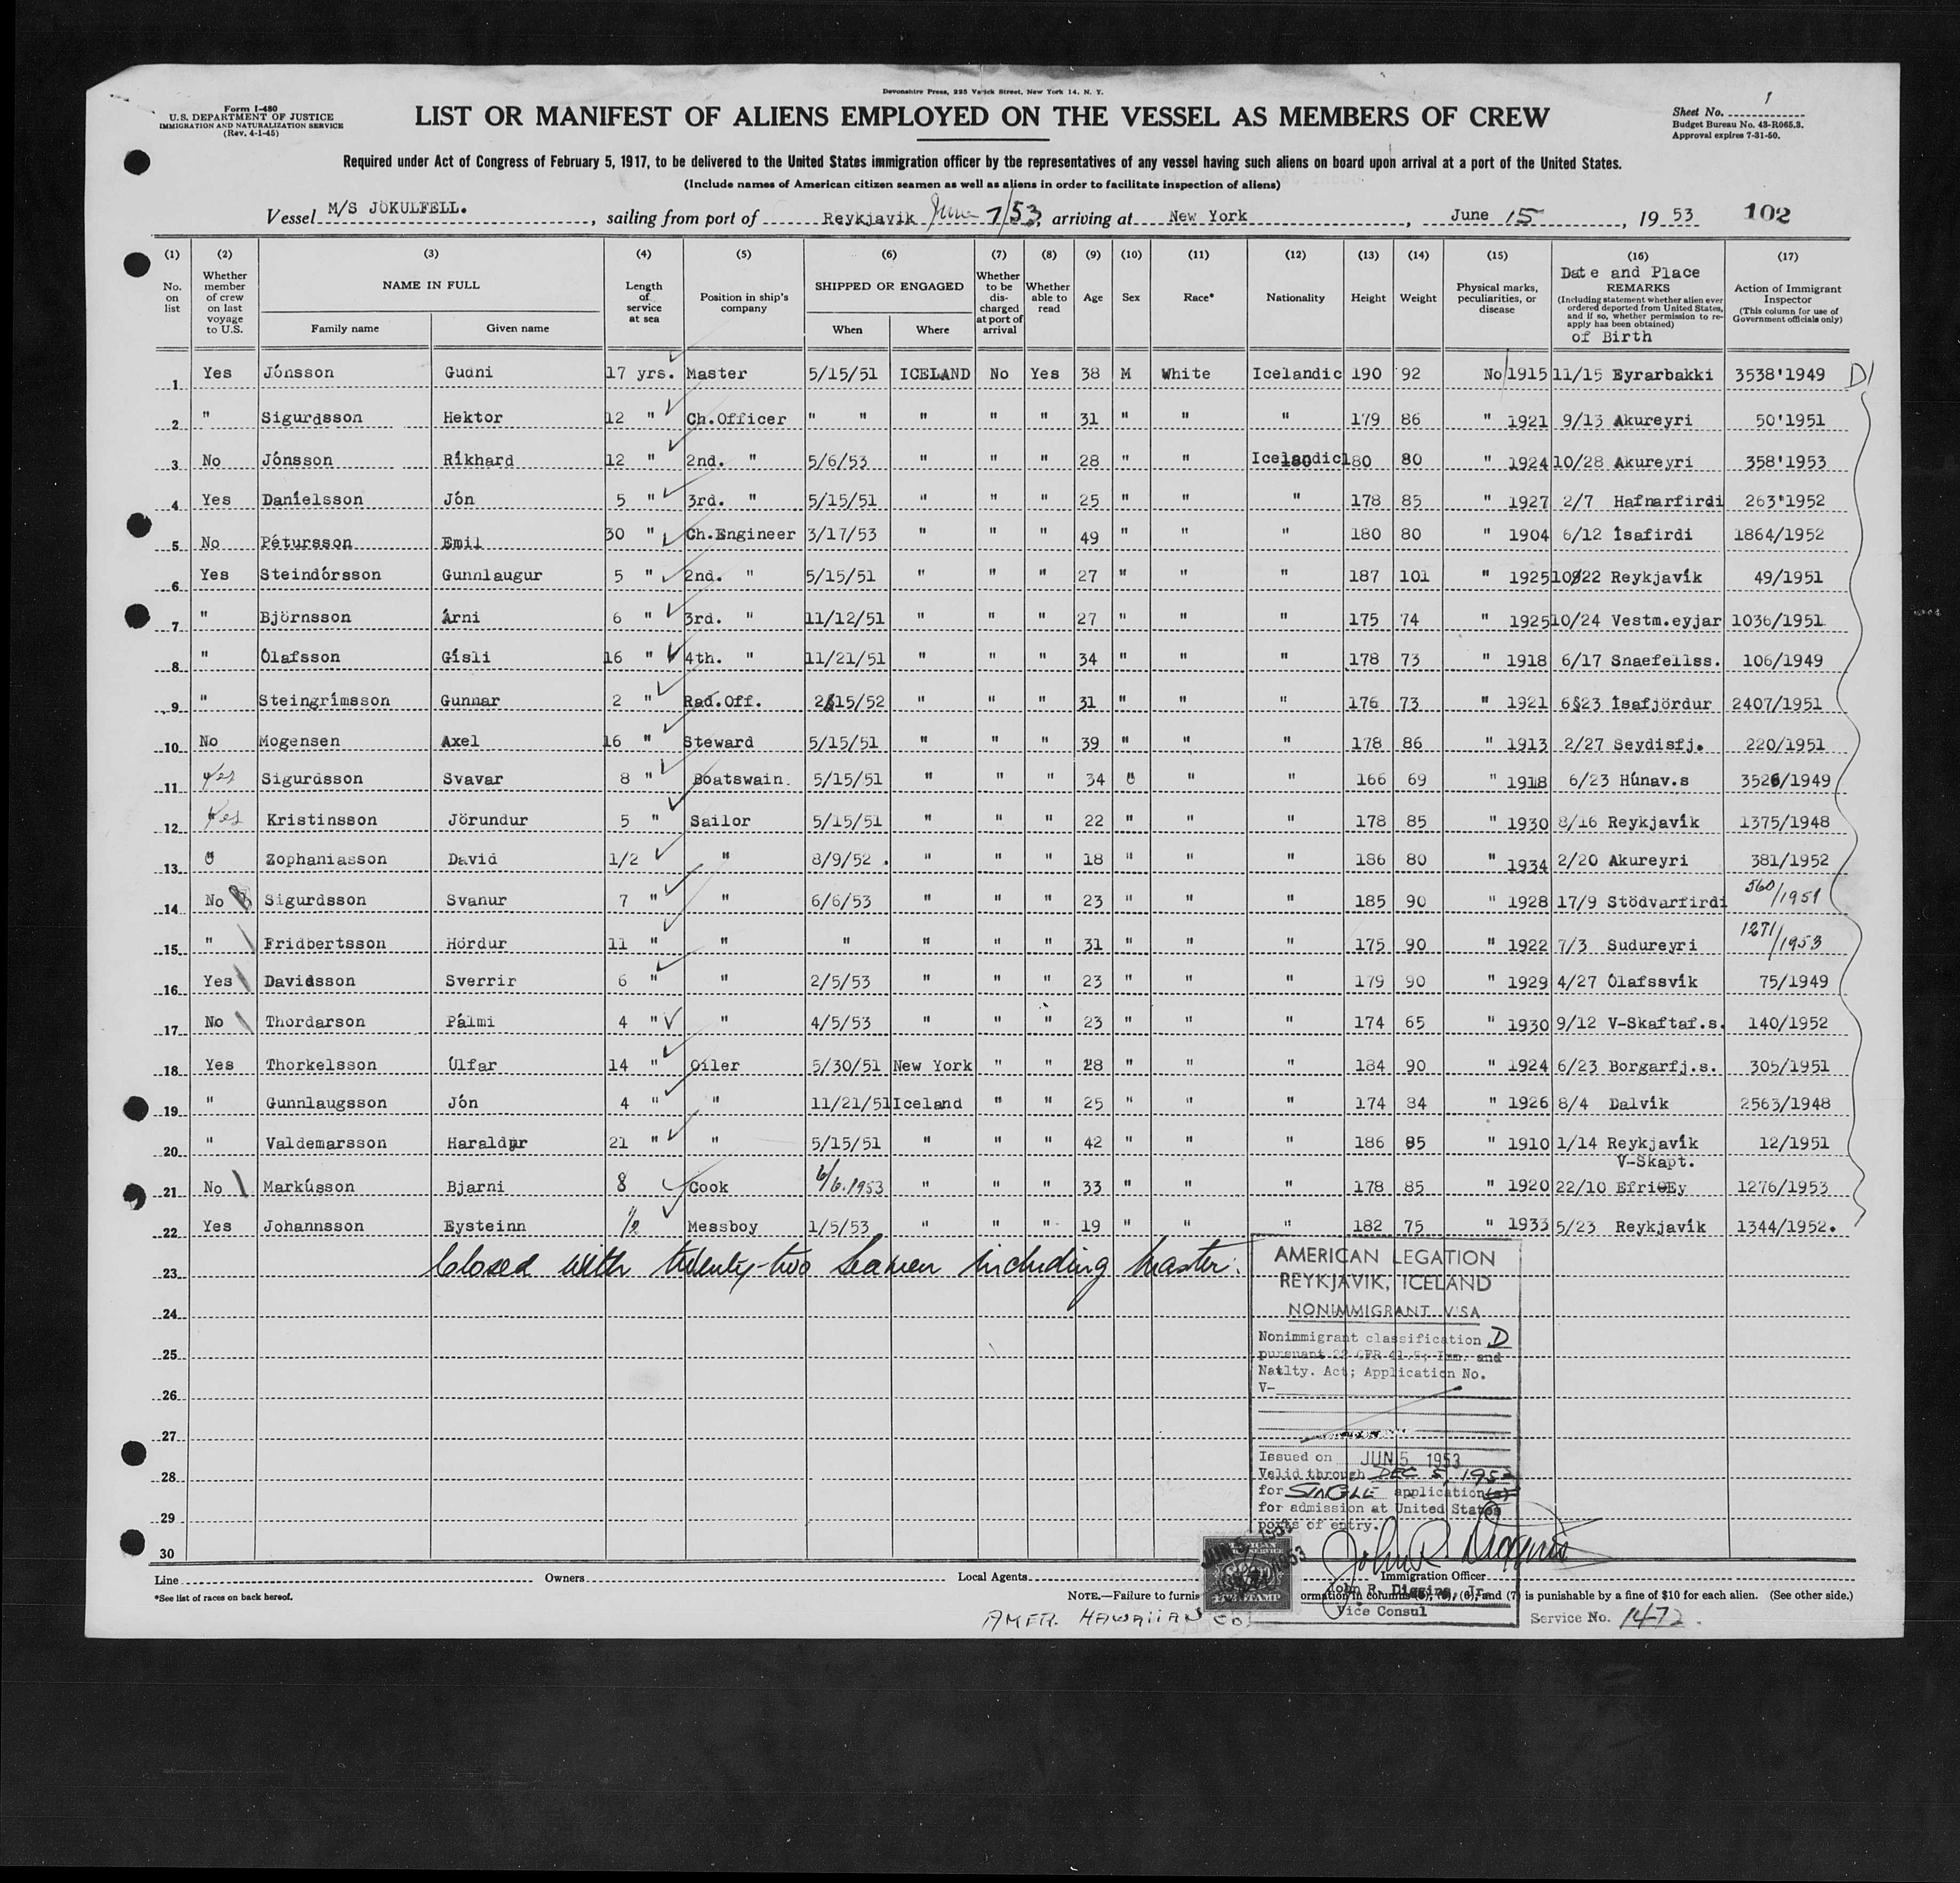 Devonshire Press, 225 Varick Street, New York 14, N. Y.
Form I-480
U.S. DEPARTMENT OF JUSTICE
IMMIGRATION AND NATURALIZATION SERVICE
(Rev. 4-1-45)
LIST OR MANIFEST OF ALIENS EMPLOYED ON THE VESSEL AS MEMBERS OF CREW
Sheet No. 1
Budget Bureau No. 43-R065.3.
Approval expires 7-31-50.
Required under Act of Congress of February 5, 1917, to be delivered to the United States immigration officer by the representatives of any vessel having such aliens on board upon arrival at a port of the United States.
(Include names of American citizen seamen as well as aliens in order to facilitate inspection of aliens)
Vessel M/S JÖKULFELL. , sailing from port of Reykjavik June 7/53, arriving at New York , June 15 , 19 53 102
(1) (2) (3) (4) (5) (6) (7) (8) (9) (10) (11) (12) (13) (14) (15) (16) (17)
No. on list
Whether member of crew on last voyage to U.S.
NAME IN FULL
Family name Given name
Length of service at sea
Position in ship's company
SHIPPED OR ENGAGED
When Where
Whether to be discharged at port of arrival
Whether able to read
Age
Sex
Race*
Nationality
Height
Weight
Physical marks, peculiarities, or disease
Date and Place
REMARKS
(Including statement whether alien ever ordered deported from United States, and if so, whether permission to reapply has been obtained)
of Birth
Action of Immigrant Inspector
(This column for use of Government officials only)
1 Yes Jónsson Gudni 17 yrs. Master 5/15/51 ICELAND No Yes 38 M White Icelandic 190 92 No 1915 11/15 Eyrarbakki 3538'1949 D1
2 " Sigurdsson Hektor 12 " Ch.Officer " " " " " 31 " " " 179 86 " 1921 9/13 Akureyri 50'1951
3 No Jónsson Ríkhard 12 " 2nd. " 5/6/53 " " " 28 " " Icelandic 180 80 " 1924 10/28 Akureyri 358'1953
4 Yes Daníelsson Jón 5 " 3rd. " 5/15/51 " " " 25 " " " 178 85 " 1927 2/7 Hafnarfirdi 263'1952
5 No Pétursson Emil 30 " Ch.Engineer 3/17/53 " " " 49 " " " 180 80 " 1904 6/12 Ísafirdi 1864/1952
6 Yes Steindórsson Gunnlaugur 5 " 2nd. " 5/15/51 " " " 27 " " " 187 101 " 1925 10/22 Reykjavík 49/1951
7 " Björnsson Árni 6 " 3rd. " 11/12/51 " " " 27 " " " 175 74 " 1925 10/24 Vestm.eyjar 1036/1951
8 " Ólafsson Gísli 16 " 4th. " 11/21/51 " " " 34 " " " 178 73 " 1918 6/17 Snaefellss. 106/1949
9 " Steingrímsson Gunnar 2 " Rad.Off. 2/15/52 " " " 31 " " " 176 73 " 1921 6§23 Ísafjördur 2407/1951
10 No Mogensen Axel 16 " Steward 5/15/51 " " " 39 " " " 178 86 " 1913 2/27 Seydisfj. 220/1951
11 Yes Sigurdsson Svavar 8 " Boatswain. 5/15/51 " " " 34 " " " 166 69 " 1918 6/23 Húnav.s 3526/1949
12 Yes Kristinsson Jörundur 5 " Sailor 5/15/51 " " " 22 " " " 178 85 " 1930 8/16 Reykjavík 1375/1948
13 " Zophaniasson David 1/2 " 8/9/52 . " " " 18 " " " 186 80 " 1934 2/20 Akureyri 381/1952
14 No Sigurdsson Svanur 7 " " 6/6/53 " " " 23 " " " 185 90 " 1928 17/9 Stödvarfirdi 560/1951
15 " Fridbertsson Hördur 11 " " " " " " 31 " " " 175 90 " 1922 7/3 Sudureyri 1271/1953
16 Yes Davidsson Sverrir 6 " " 2/5/53 " " " 23 " " " 179 90 " 1929 4/27 Ólafssvík 75/1949
17 No Thordarson Pálmi 4 " " 4/5/53 " " " 23 " " " 174 65 " 1930 9/12 V-Skaftaf.s. 140/1952
18 Yes Thorkelsson Úlfar 14 " Oiler 5/30/51 New York " " 28 " " " 184 90 " 1924 6/23 Borgarfj.s. 305/1951
19 " Gunnlaugsson Jón 4 " " 11/21/51 Iceland " " 25 " " " 174 84 " 1926 8/4 Dalvik 2563/1948
20 " Valdemarsson Haraldur 21 " " 5/15/51 " " " 42 " " " 186 85 " 1910 1/14 Reykjavík 12/1951
V-Skapt.
21 No Markússon Bjarni 8 Cook 6/6.1953 " " " 33 " " " 178 85 " 1920 22/10 EfriEy 1276/1953
22 Yes Johannsson Eysteinn 1/2 Messboy 1/5/53 " " " 19 " " " 182 75 " 1933 5/23 Reykjavík 1344/1952.
23 Closed with twenty-two seamen including master.
24
25
26
27
28
29
30
AMERICAN LEGATION
REYKJAVIK, ICELAND
NONIMMIGRANT VISA
Nonimmigrant classification D
pursuant 22 CFR 41.5; Imm. and
Natlty. Act; Application No.
V-
Issued on JUN 5 1953
Valid through DEC 5, 1953
for SINGLE application(s)
for admission at United States
ports of entry.
John R. Diggins
Line Owners Local Agents Immigration Officer
John R. Diggins, Jr.
Vice Consul
*See list of races on back hereof.
NOTE.—Failure to furnis ormation in columns (3), (5), (6), and (7) is punishable by a fine of $10 for each alien. (See other side.)
AMER. HAWAIIAN CO.
Service No. 1472.